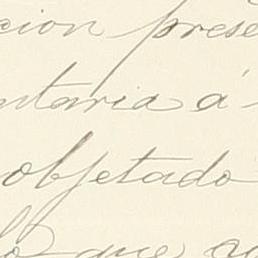 cion prese
ntaria á
objetado
lo que ac